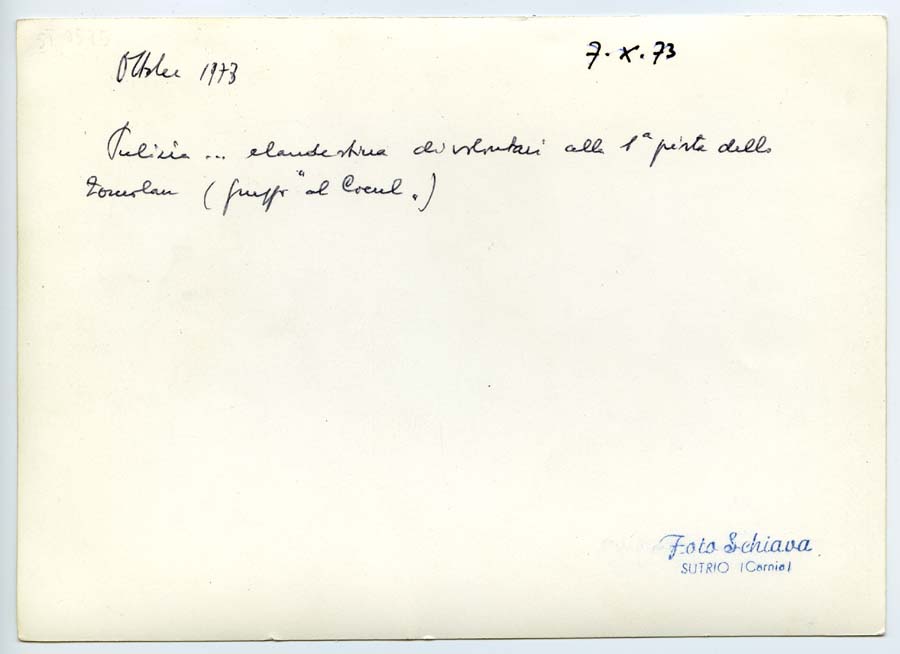 Ottobre 1973
7·X·73
Pulizia ... clandestina di volontari alla 1ª pista dello
Zoncolan ( gruppo "al Cocul„ )
Foto Schiava
SUTRIO (Carnia)